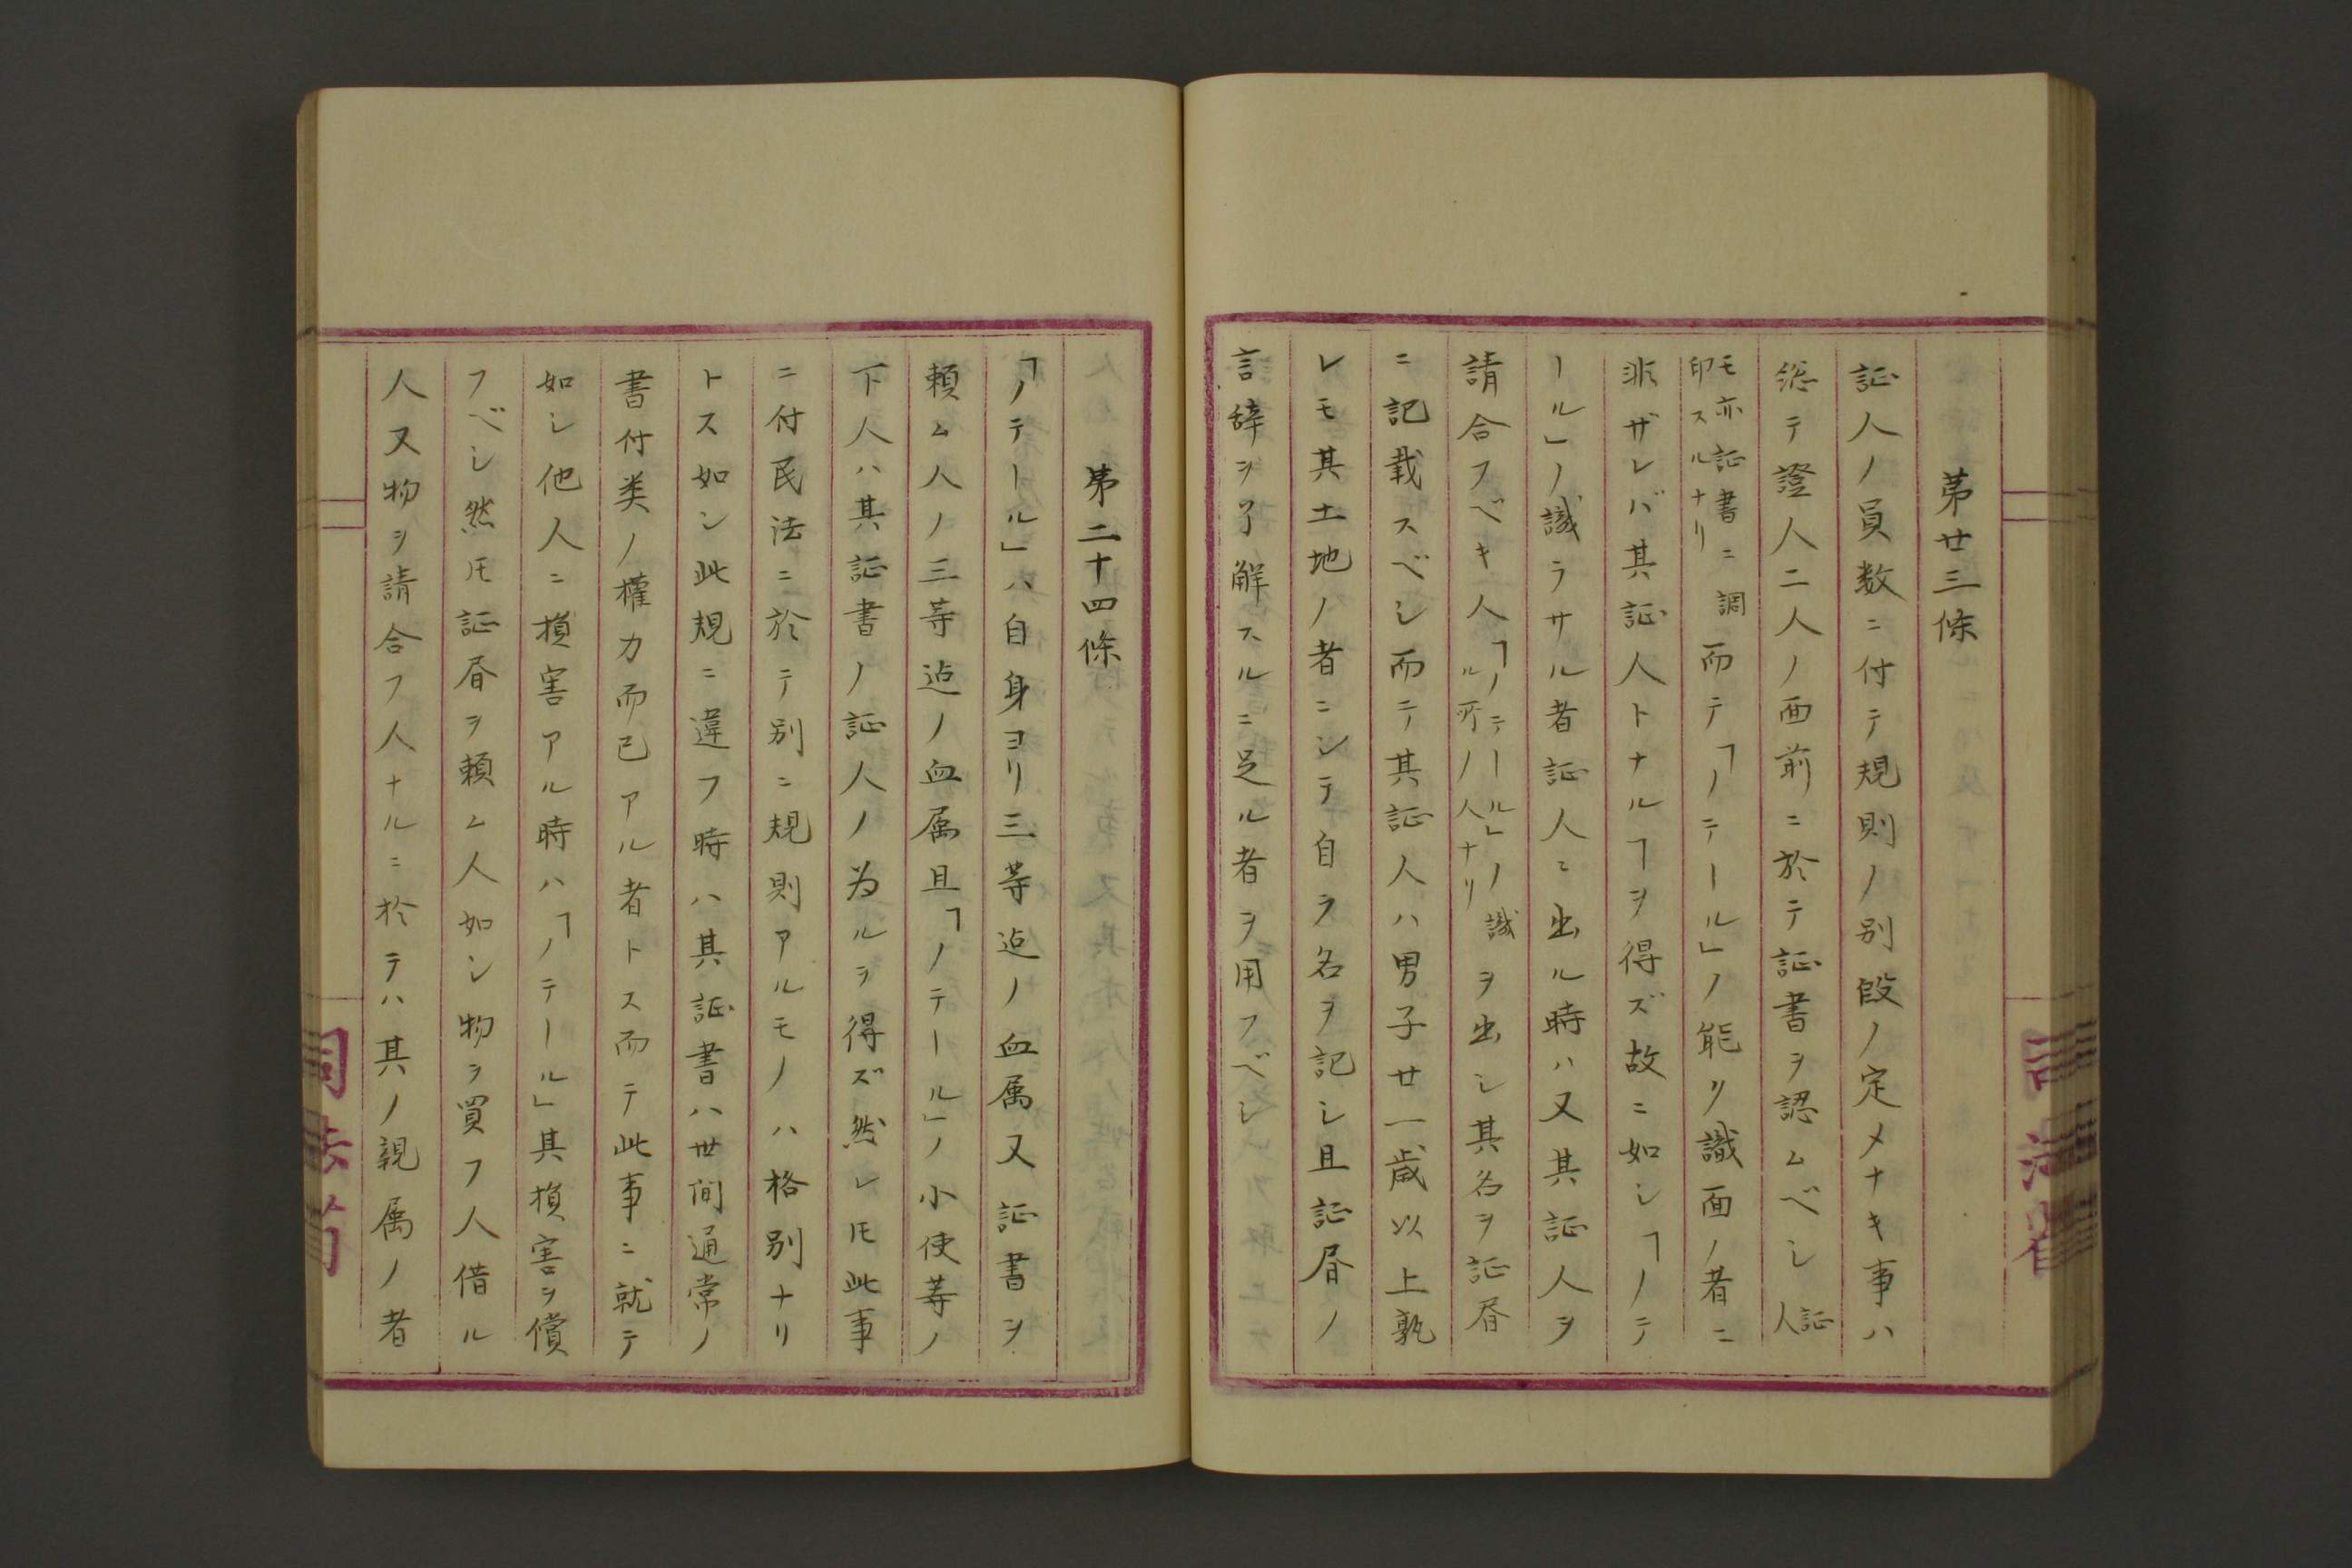 第廿三條
証人ノ員数ニ付テ規則ノ別段ノ定メナキ事ハ
総テ證人二人ノ面前ニ於テ証書ヲ認ムベシ証人
モ亦証書ニ調印スルナリ而テ「ノテール」ノ能ク識面ノ者ニ
非ザレバ其証人トナルヿヲ得ズ故ニ如シ「ノテ
ール」ノ識ラサル者証人ニ出ル時ハ又其証人ヲ
請合フベキ人「ノテール」ノ識ル所ノ人ナリヲ出シ其名ヲ証書
ニ記載スベシ而テ其証人ハ男子廿一歳以上孰
レモ其土地ノ者ニシテ自ラ名ヲ記シ且証書ノ
言辞ヲ了解スルニ足ル者ヲ用フベシ
第二十四條
「ノテール」ハ自身ヨリ三等迠ノ血属又証書ヲ
頼ム人ノ三等迠ノ血属且「ノテール」ノ小使等ノ
下人ハ其証書ノ証人ノ為ルヲ得ズ然レ𪜈此事
ニ付民法ニ於テ別ニ規則アルモノハ格別ナリ
トス如シ此規ニ違フ時ハ其証書ハ世間通常ノ
書付类ノ權力而已アル者トス而テ此事ニ就テ
如シ他人ニ損害アル時ハ「ノテール」其損害ヲ償
フベシ然𪜈証書ヲ頼ム人如シ物ヲ買フ人借ル
人又物ヲ請合フ人ナルニ於テハ其ノ親属ノ者
司法省